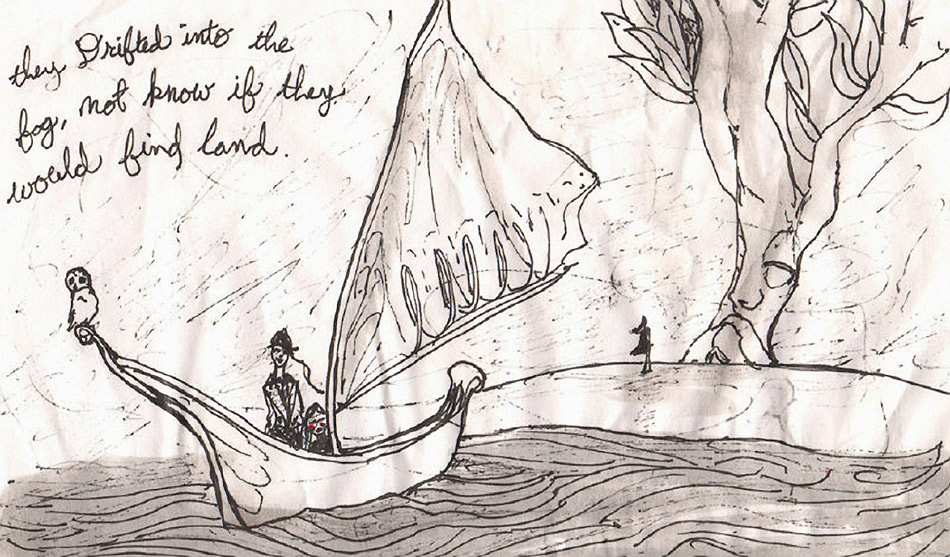 they Drifted into the
fog, not know if they
would find land.